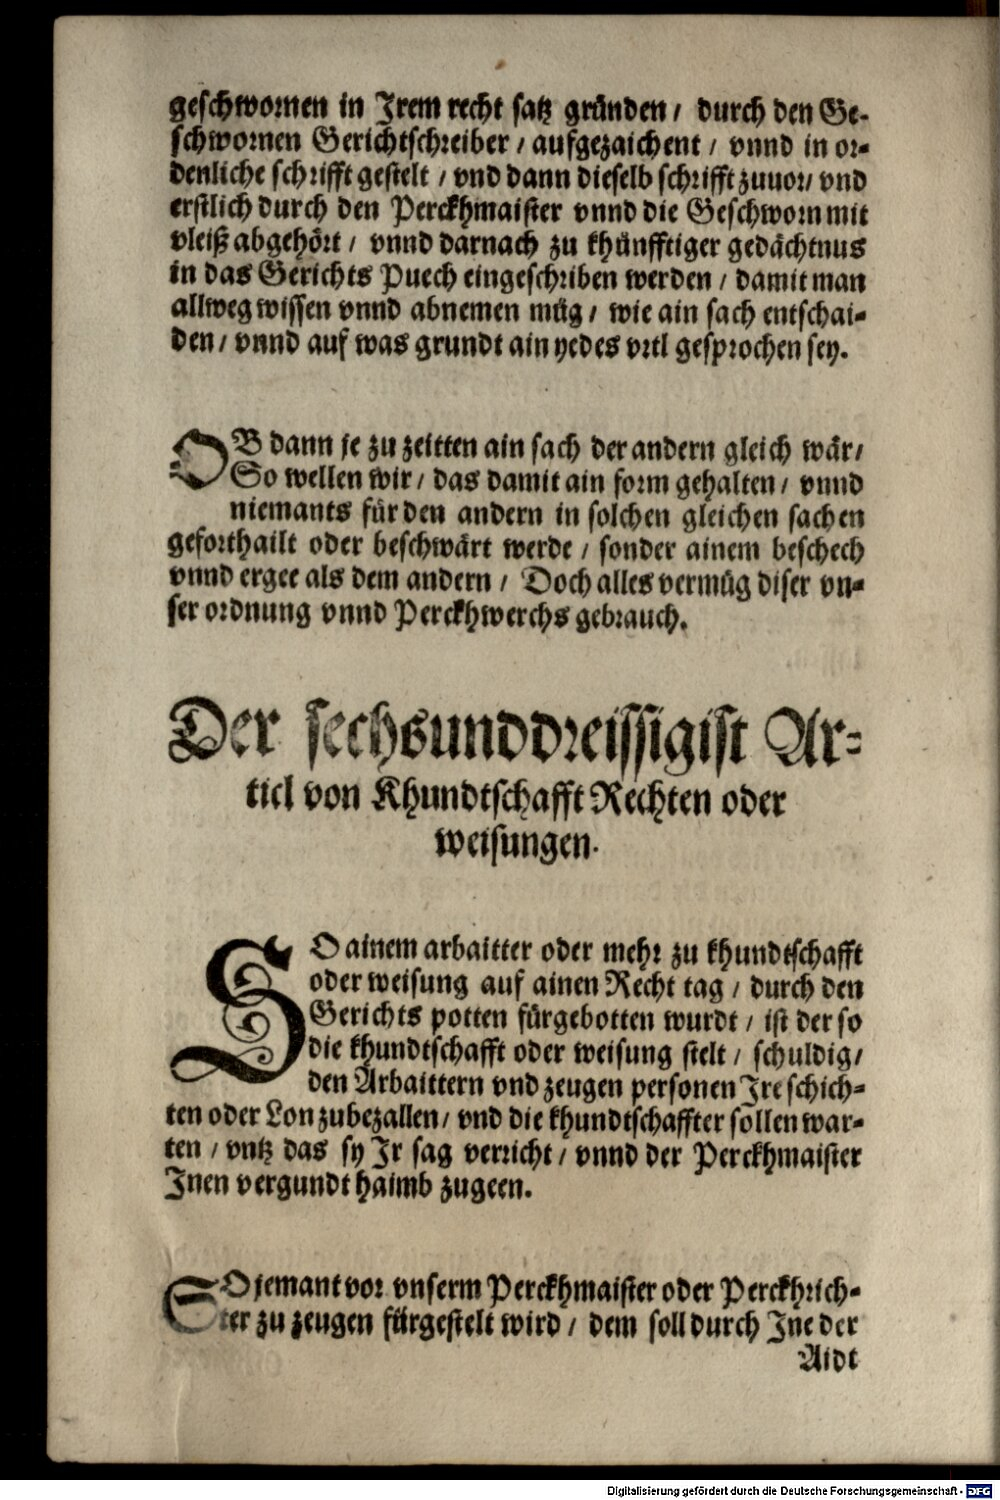 geschwornen in Jrem recht satz gründen / durch den Ge-
schwornen Gerichtschreiber / aufgezaichent / vnnd in or-
denliche schrifft gestelt / vnd dann dieselb schrifft zuuor / vnd
erstlich durch den Perckhmaister vnnd die Geschworn mit
vleiß abgehört / vnnd darnach zu khünfftiger gedächtnus
in das Gerichts Puech eingeschriben werden / damit man
allweg wissen vnnd abnemen müg / wie ain sach entschai-
den / vnnd auf was grundt ain yedes vrtl gesprochen sey.
OB dann je zu zeitten ain sach der andern gleich wär /
So wellen wir / das damit ain form gehalten / vnnd
niemants für den andern in solchen gleichen sachen
geforthailt oder beschwärt werde / sonder ainem beschech
vnnd ergee als dem andern / Doch alles vermüg diser vn-
ser ordnung vnnd Perckhwerchs gebrauch.
Der sechsunddreissigist Ar-
ticl von Khundtschafft Rechten oder
weisungen.
SO ainem arbaitter oder mehr zu khundtschafft
oder weisung auf ainen Recht tag / durch den
Gerichts potten fürgebotten wurdt / ist der so
die khundtschafft oder weisung stelt / schuldig /
den Arbaittern vnd zeugen personen Jre schich-
ten oder Lon zubezallen / vnd die khundtschaffter sollen war-
ten / vntz das sy Jr sag verricht / vnnd der Perckhmaister
Jnen vergundt haimb zugeen.
SO jemant vor vnserm Perckhmaister oder Perckhrich-
ter zu zeugen fürgestelt wird / dem soll durch Jne der
Aidt
Digitalisierung gefördert durch die Deutsche Forschungsgemeinschaft - DFG